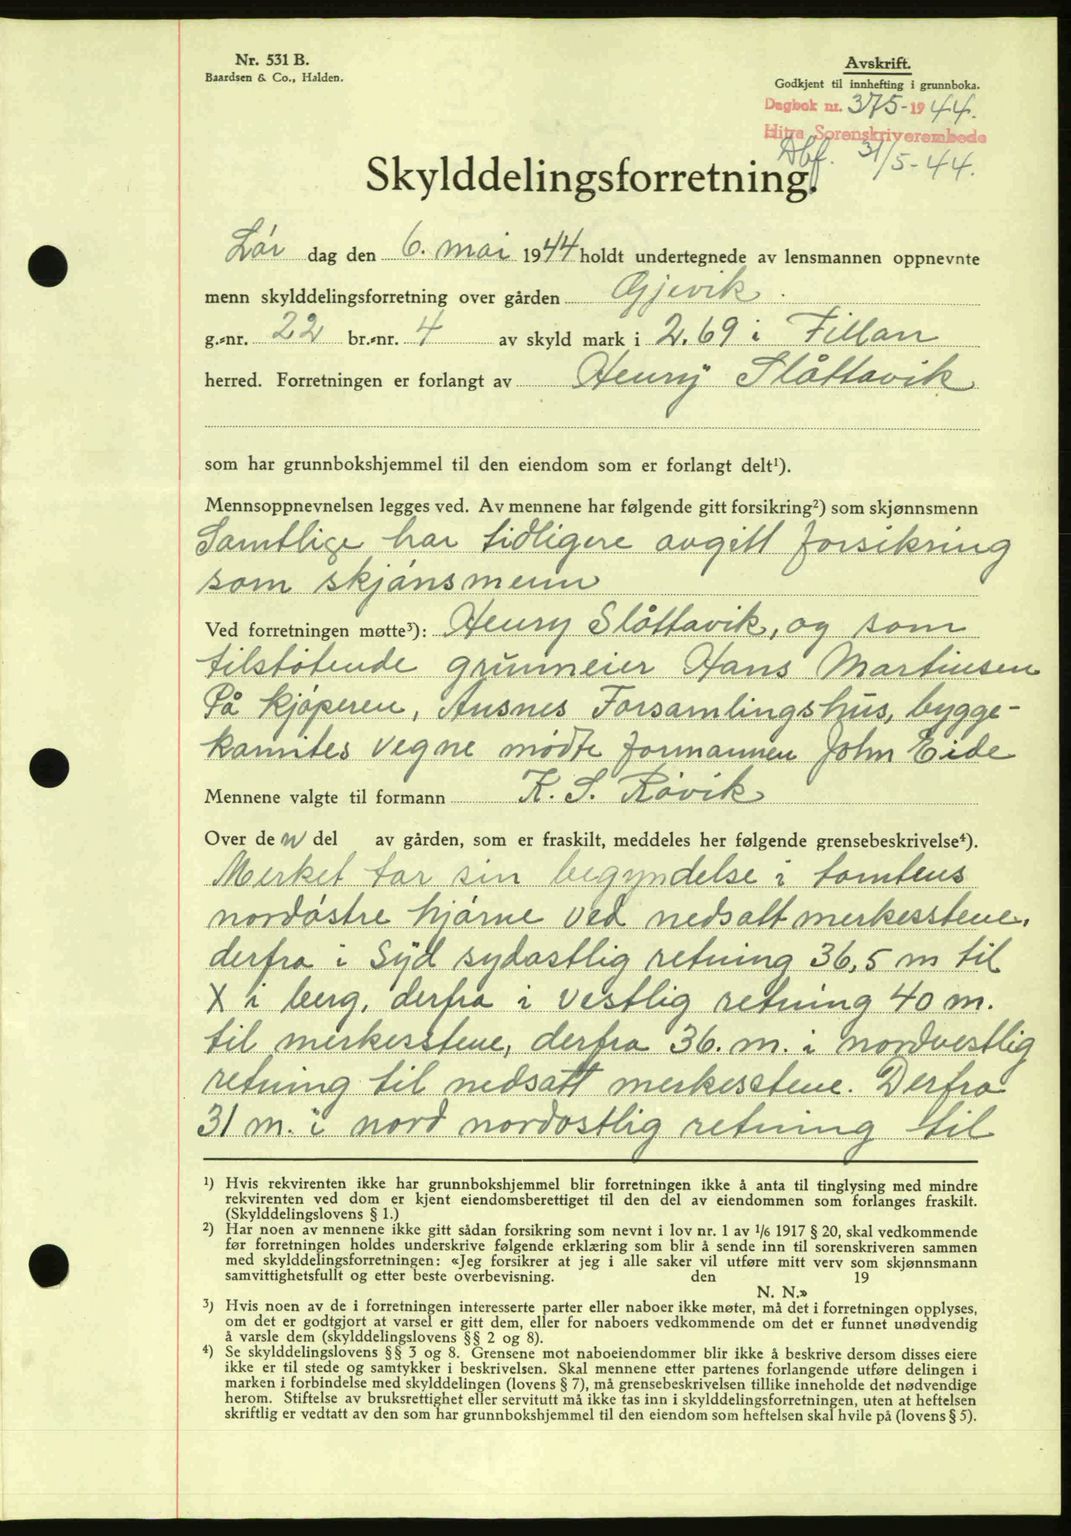 Nr. 531 B.
Baardsen & Co., Halden.
Avskrift.
Godkjent til innhefting i grunnboka.
Dagbok nr. 375-1944.
Hitra Sorenskriverembede
Dbf. 31/5-44.
Skylddelingsforretning.
Lør dag den 6. mai 1944 holdt undertegnede av lensmannen oppnevnte
menn skylddelingsforretning over gården Gjevik
g.-nr. 22 br.-nr. 4 av skyld mark i 2.69 i Fillan
herred. Forretningen er forlangt av Henry Slåttavik
som har grunnbokshjemmel til den eiendom som er forlangt delt¹).
Mennsoppnevnelsen legges ved. Av mennene har følgende gitt forsikring²) som skjønnsmenn
Samtlige har tidligere avgitt forsikring
som skjönsmenn
Ved forretningen møtte³): Henry Slåttavik, og som
tilstötende grunneier Hans Martinsen
På kjöperen, Ansnes Forsamlingshus, bygge-
komites vegne mödte formannen John Eide
Mennene valgte til formann K. S. Rövik
Over den del av gården, som er fraskilt, meddeles her følgende grensebeskrivelse⁴).
Merket tar sin begyndelse i tomtens
nordöstre hjörne ved nedsatt merkesstene,
derfra i Syd sydostlig retning 36,5 m til
X i berg, derfra i vestlig retning 40 m.
til merkesstene, derfra 36. m. i nordvestlig
retning til nedsatt merkesstene. Derfra
31 m. i nord nordostlig retning til
¹) Hvis rekvirenten ikke har grunnbokshjemmel blir forretningen ikke å anta til tinglysing med mindre
rekvirenten ved dom er kjent eiendomsberettiget til den del av eiendommen som forlanges fraskilt.
(Skylddelingslovens § 1.)
²) Har noen av mennene ikke gitt sådan forsikring som nevnt i lov nr. 1 av 1/6 1917 § 20, skal vedkommende
før forretningen holdes underskrive følgende erklæring som blir å sende inn til sorenskriveren sammen
med skylddelingsforretningen: «Jeg forsikrer at jeg i alle saker vil utføre mitt verv som skjønnsmann
samvittighetsfullt og etter beste overbevisning. den 19
N. N.»
³) Hvis noen av de i forretningen interesserte parter eller naboer ikke møter, må det i forretningen opplyses,
om det er godtgjort at varsel er gitt dem, eller for naboers vedkommende om det er funnet unødvendig
å varsle dem (skylddelingslovens §§ 2 og 8).
⁴) Se skylddelingslovens §§ 3 og 8. Grensene mot naboeiendommer blir ikke å beskrive dersom disses eiere
ikke er til stede og samtykker i beskrivelsen. Skal mennene etter partenes forlangende utføre delingen i
marken i forbindelse med skylddelingen (lovens § 7), må grensebeskrivelsen tillike inneholde det nødvendige
herom. Stiftelse av bruksrettighet eller servitutt må ikke tas inn i skylddelingsforretningen, uten at heftelsen
skriftlig er vedtatt av den som har grunnbokshjemmel til den eiendom som heftelsen skal hvile på (lovens § 5).